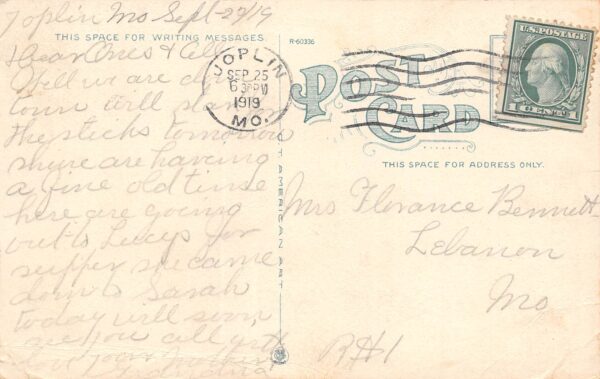 Joplin Mo Sept 27/19
THIS SPACE FOR WRITING MESSAGES
R-60336
Dear Ones & All
Well we are
town will
the sticks tomorrow
are having
a fine old time
here are going
out to Lucys for
supper she came
down to Sarah
today will soon
see you all
love
JOPLIN
SEP 25
6
1919
MO.
POST
CARD
U.S. POSTAGE
1 CENT 1
THIS SPACE FOR ADDRESS ONLY.
AMERICAN ART
Mrs Florance Bennett
Lebanon
Mo
R H 1